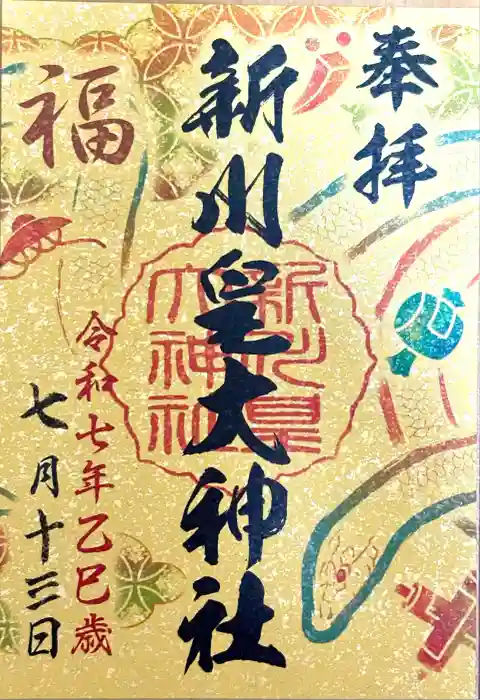 奉拝
新川皇大神社
新川皇
大神社
福
令和七年乙巳歳
七月十三日